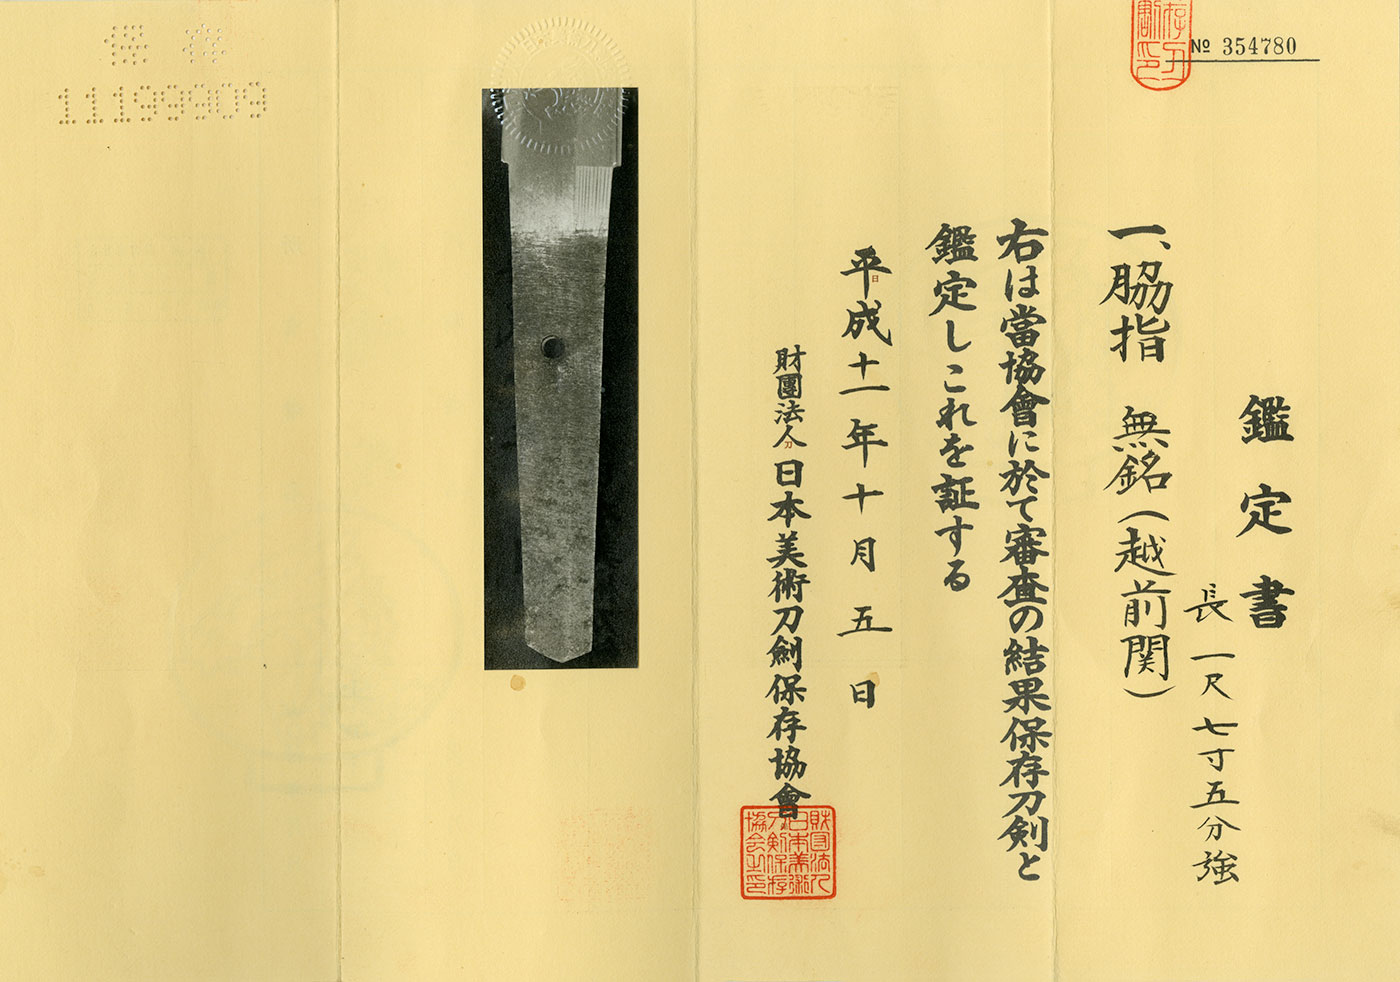 № 354780
鑑定書
一、脇指 無銘(越前関)
長 一尺七寸五分強
右は當協會に於て審査の結果保存刀剣と
鑑定しこれを証する
平成十一年十月五日
財團法人日本美術刀剣保存協會
財団法人
日本美術
刀剣保存
協会之印
保存
11199909